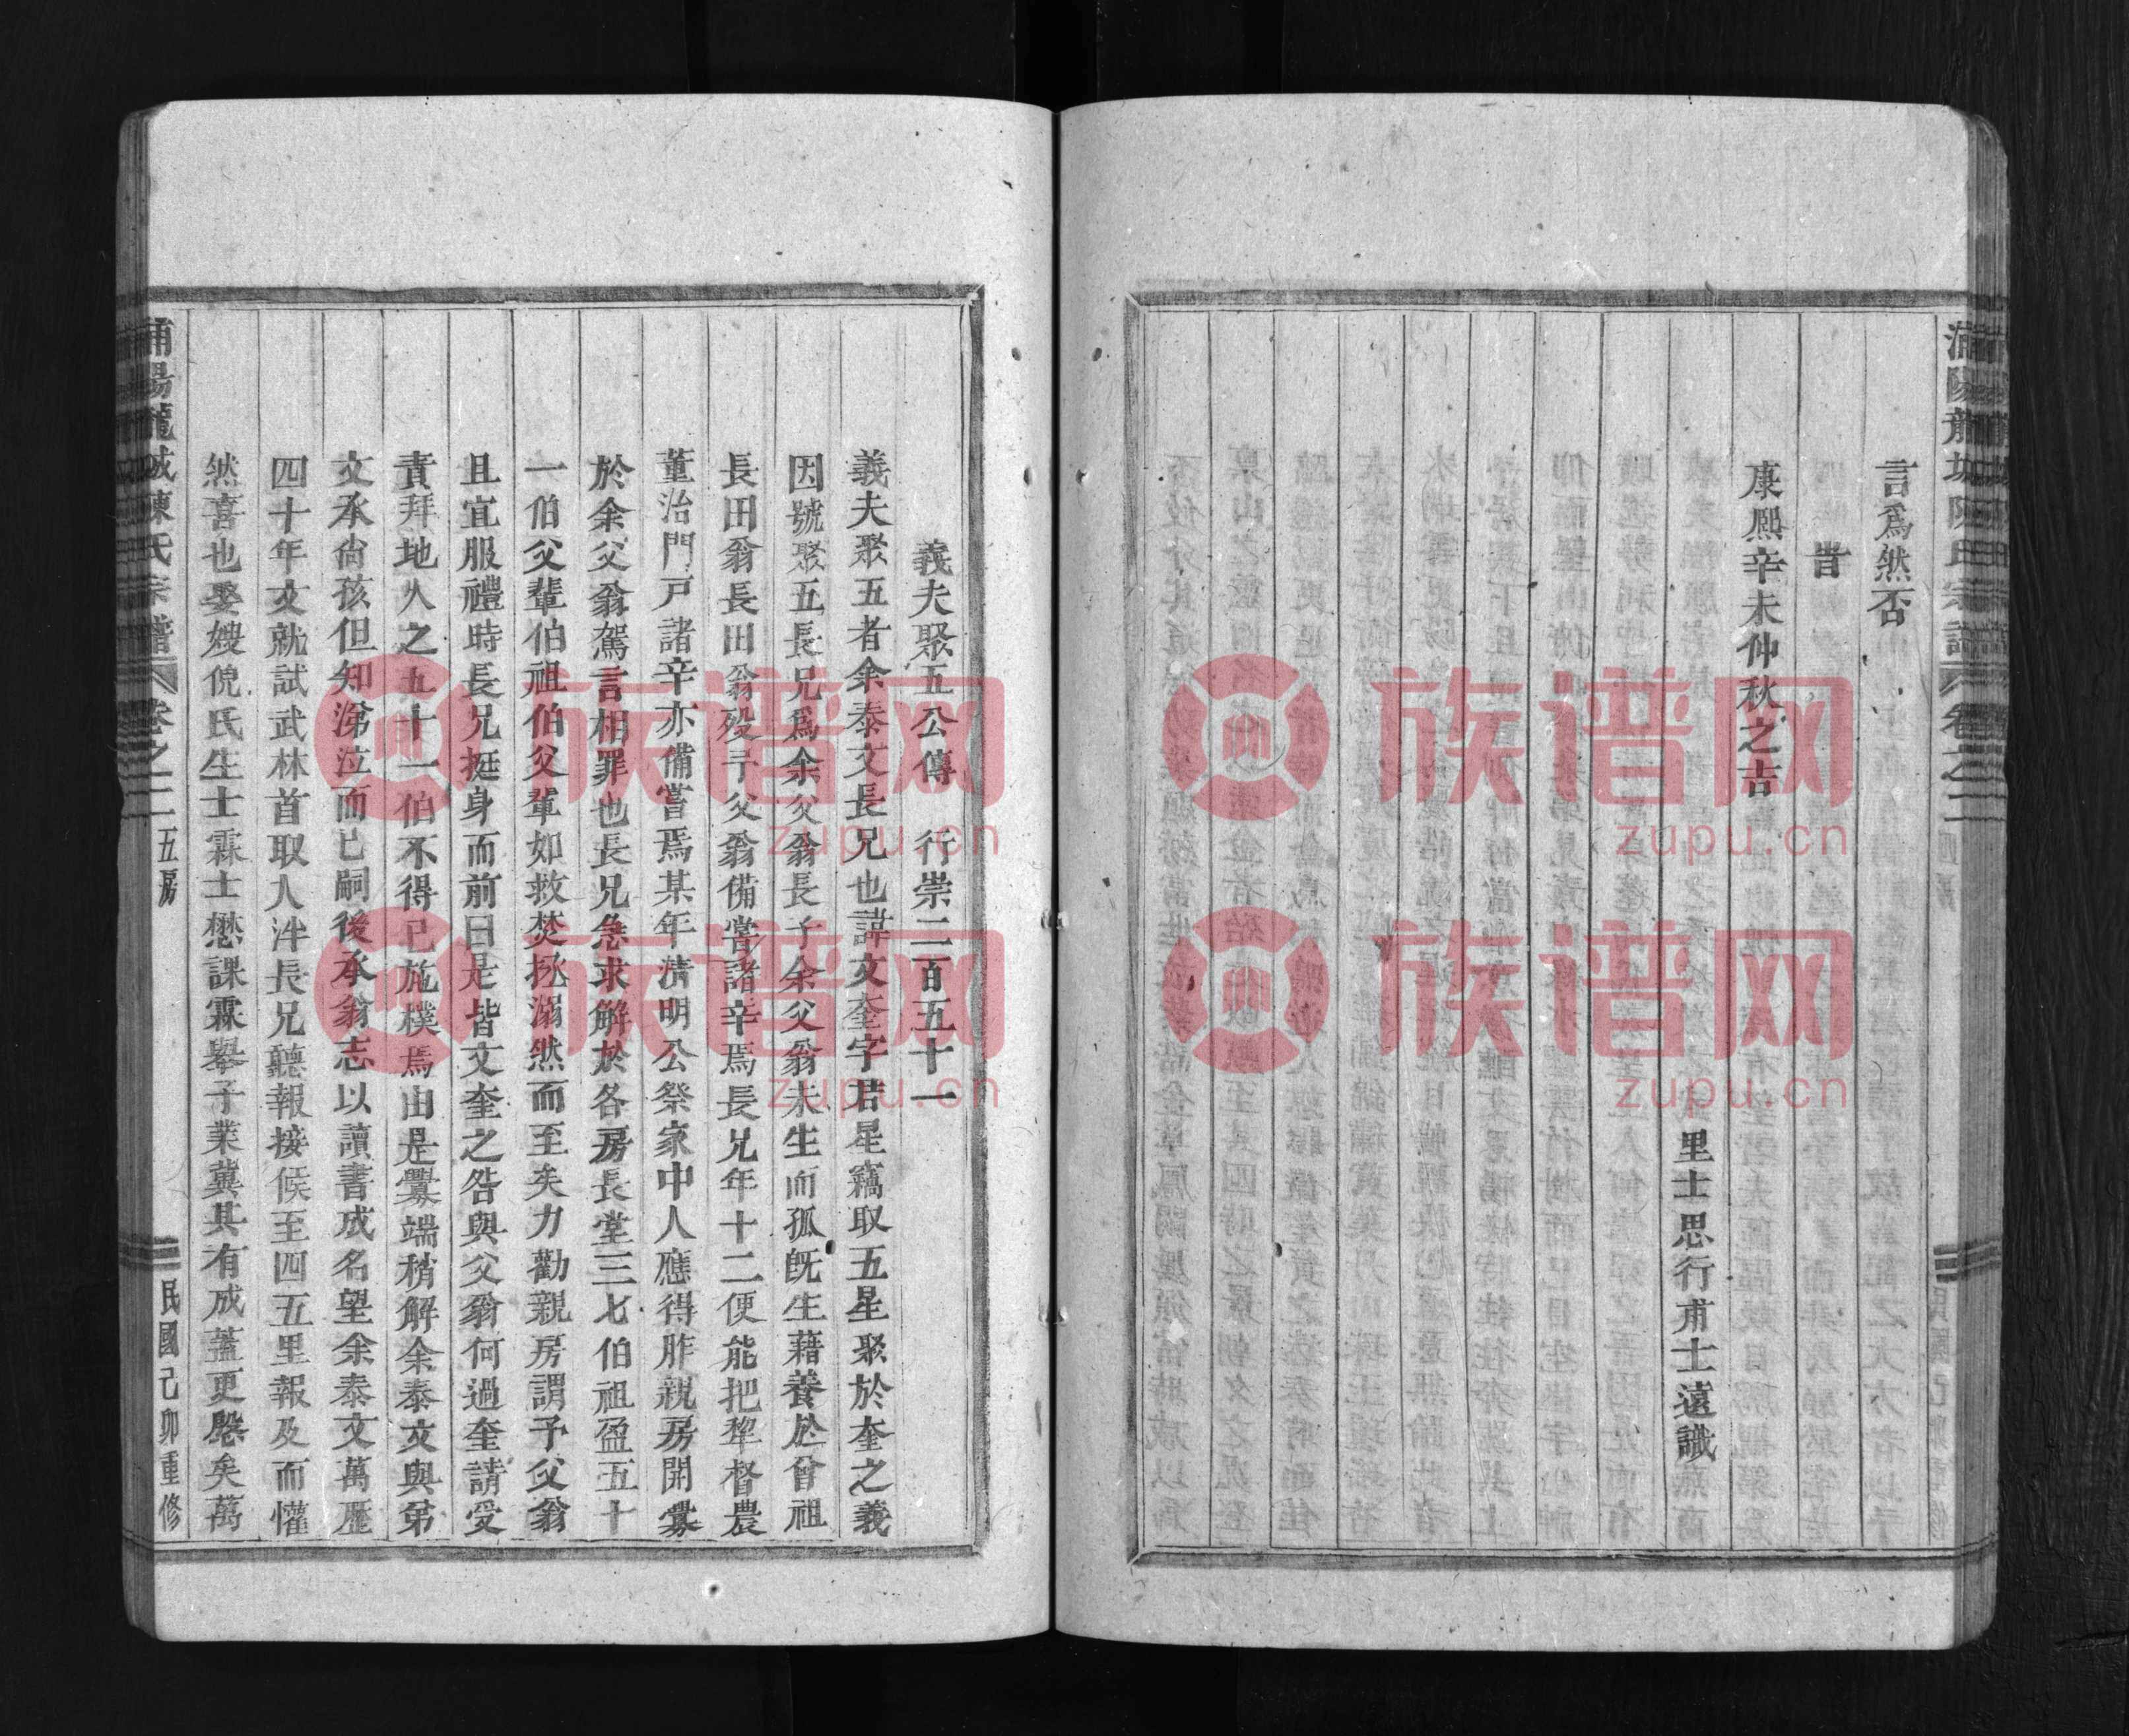 言爲然否
旹
康熙辛未仲秋之吉
里士思行甫士遠識
義夫聚五公傳 行崇二百五十一
義夫聚五者余泰文長兄也諱文奎字君星竊取五星聚於奎之義
因號聚五長兄爲余父翁長子余父翁未生而孤旣生藉養於曾祖
長田翁長田翁歿予父翁備嘗諸辛焉長兄年十二便能把犂督農
董治門戸諸辛亦備嘗焉某年淸明公祭家中人應得胙親房開釁
於余父翁駕言相罪也長兄急求解於各房長堂三七伯祖盈五十
一伯父輩伯祖伯父輩如救焚拯溺然而至矣力勸親房謂予父翁
且宜服禮時長兄挺身而前曰是皆文奎之咎與父翁何過奎請受
責拜地人之五十一伯不得已施樸焉由是釁端稍解余泰文與弟
文承尙孩但知涕泣而已嗣後承翁志以讀書成名望余泰文萬歷
四十年文就試武林首取入泮長兄聽報接候至四五里報及而懽
然喜也娶嫂倪氏生士霖士懋課霖舉子業冀其有成蓋更慇矣萬
浦陽龍城陳氏宗譜 卷之二 五房 民國己卯重修
族谱网
zupu.cn
族谱网
zupu.cn
族谱网
zupu.cn
族谱网
zupu.cn